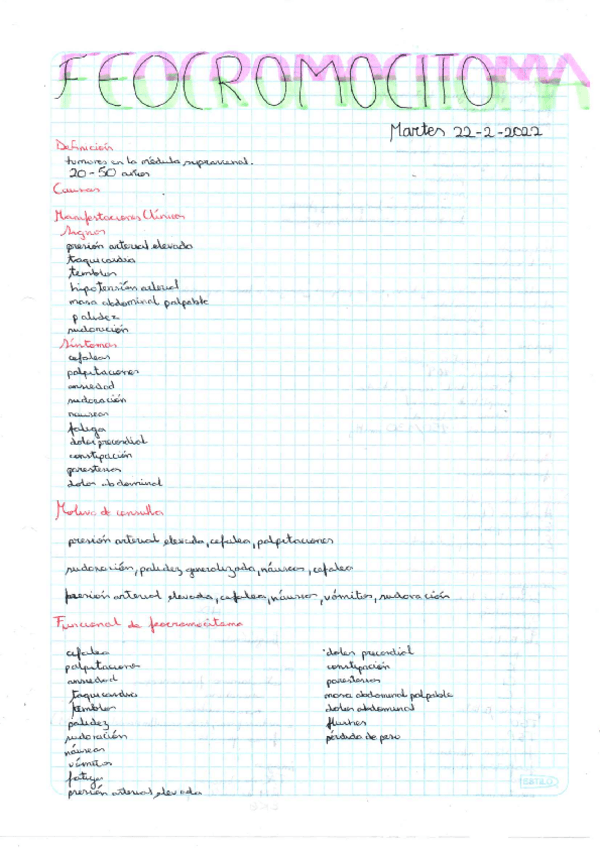 FEOCROMOCITOMA
Martes 22-2-2022
Definición
tumores en la médula suprarrenal.
20-50 años
Causas
Manifestaciones Clínicas
Signos
presión arterial elevada
taquicardia
temblor
hipotensión arterial
masa abdominal palpable
palidez
sudoración
Síntomas
cefaleas
palpitaciones
ansiedad
sudoración
nauseas
fatiga
dolor precordial
constipación
parestesias
dolor abdominal
Motivo de consulta
presión arterial elevada, cefalea, palpitaciones
sudoración, palidez generalizada, náuseas, cefalea
presión arterial elevada, cefalea, náuseas, vómitos, sudoración
Funcional de feocromocitoma
cefalea
palpitaciones
ansiedad
taquicardia
temblor
palidez
sudoración
náuseas
vómitos
fatiga
presión arterial elevada
dolor precordial
constipación
parestesias
masa abdominal palpable
dolor abdominal
flushes
pérdida de peso